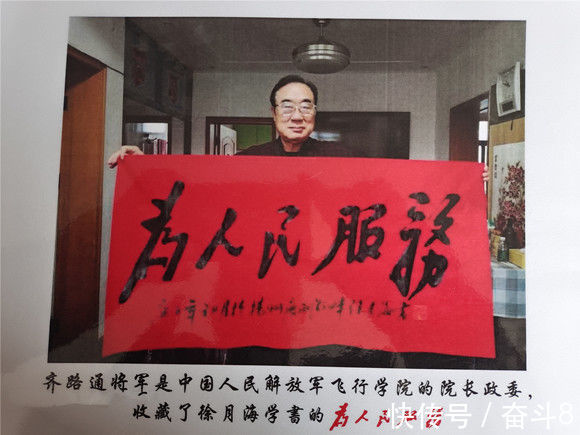 为人民服務
齐路通将军是中国人民解放军飞行学院的院长政委，
收藏了徐月海学書的为人民服務
快传号 / 奋斗8